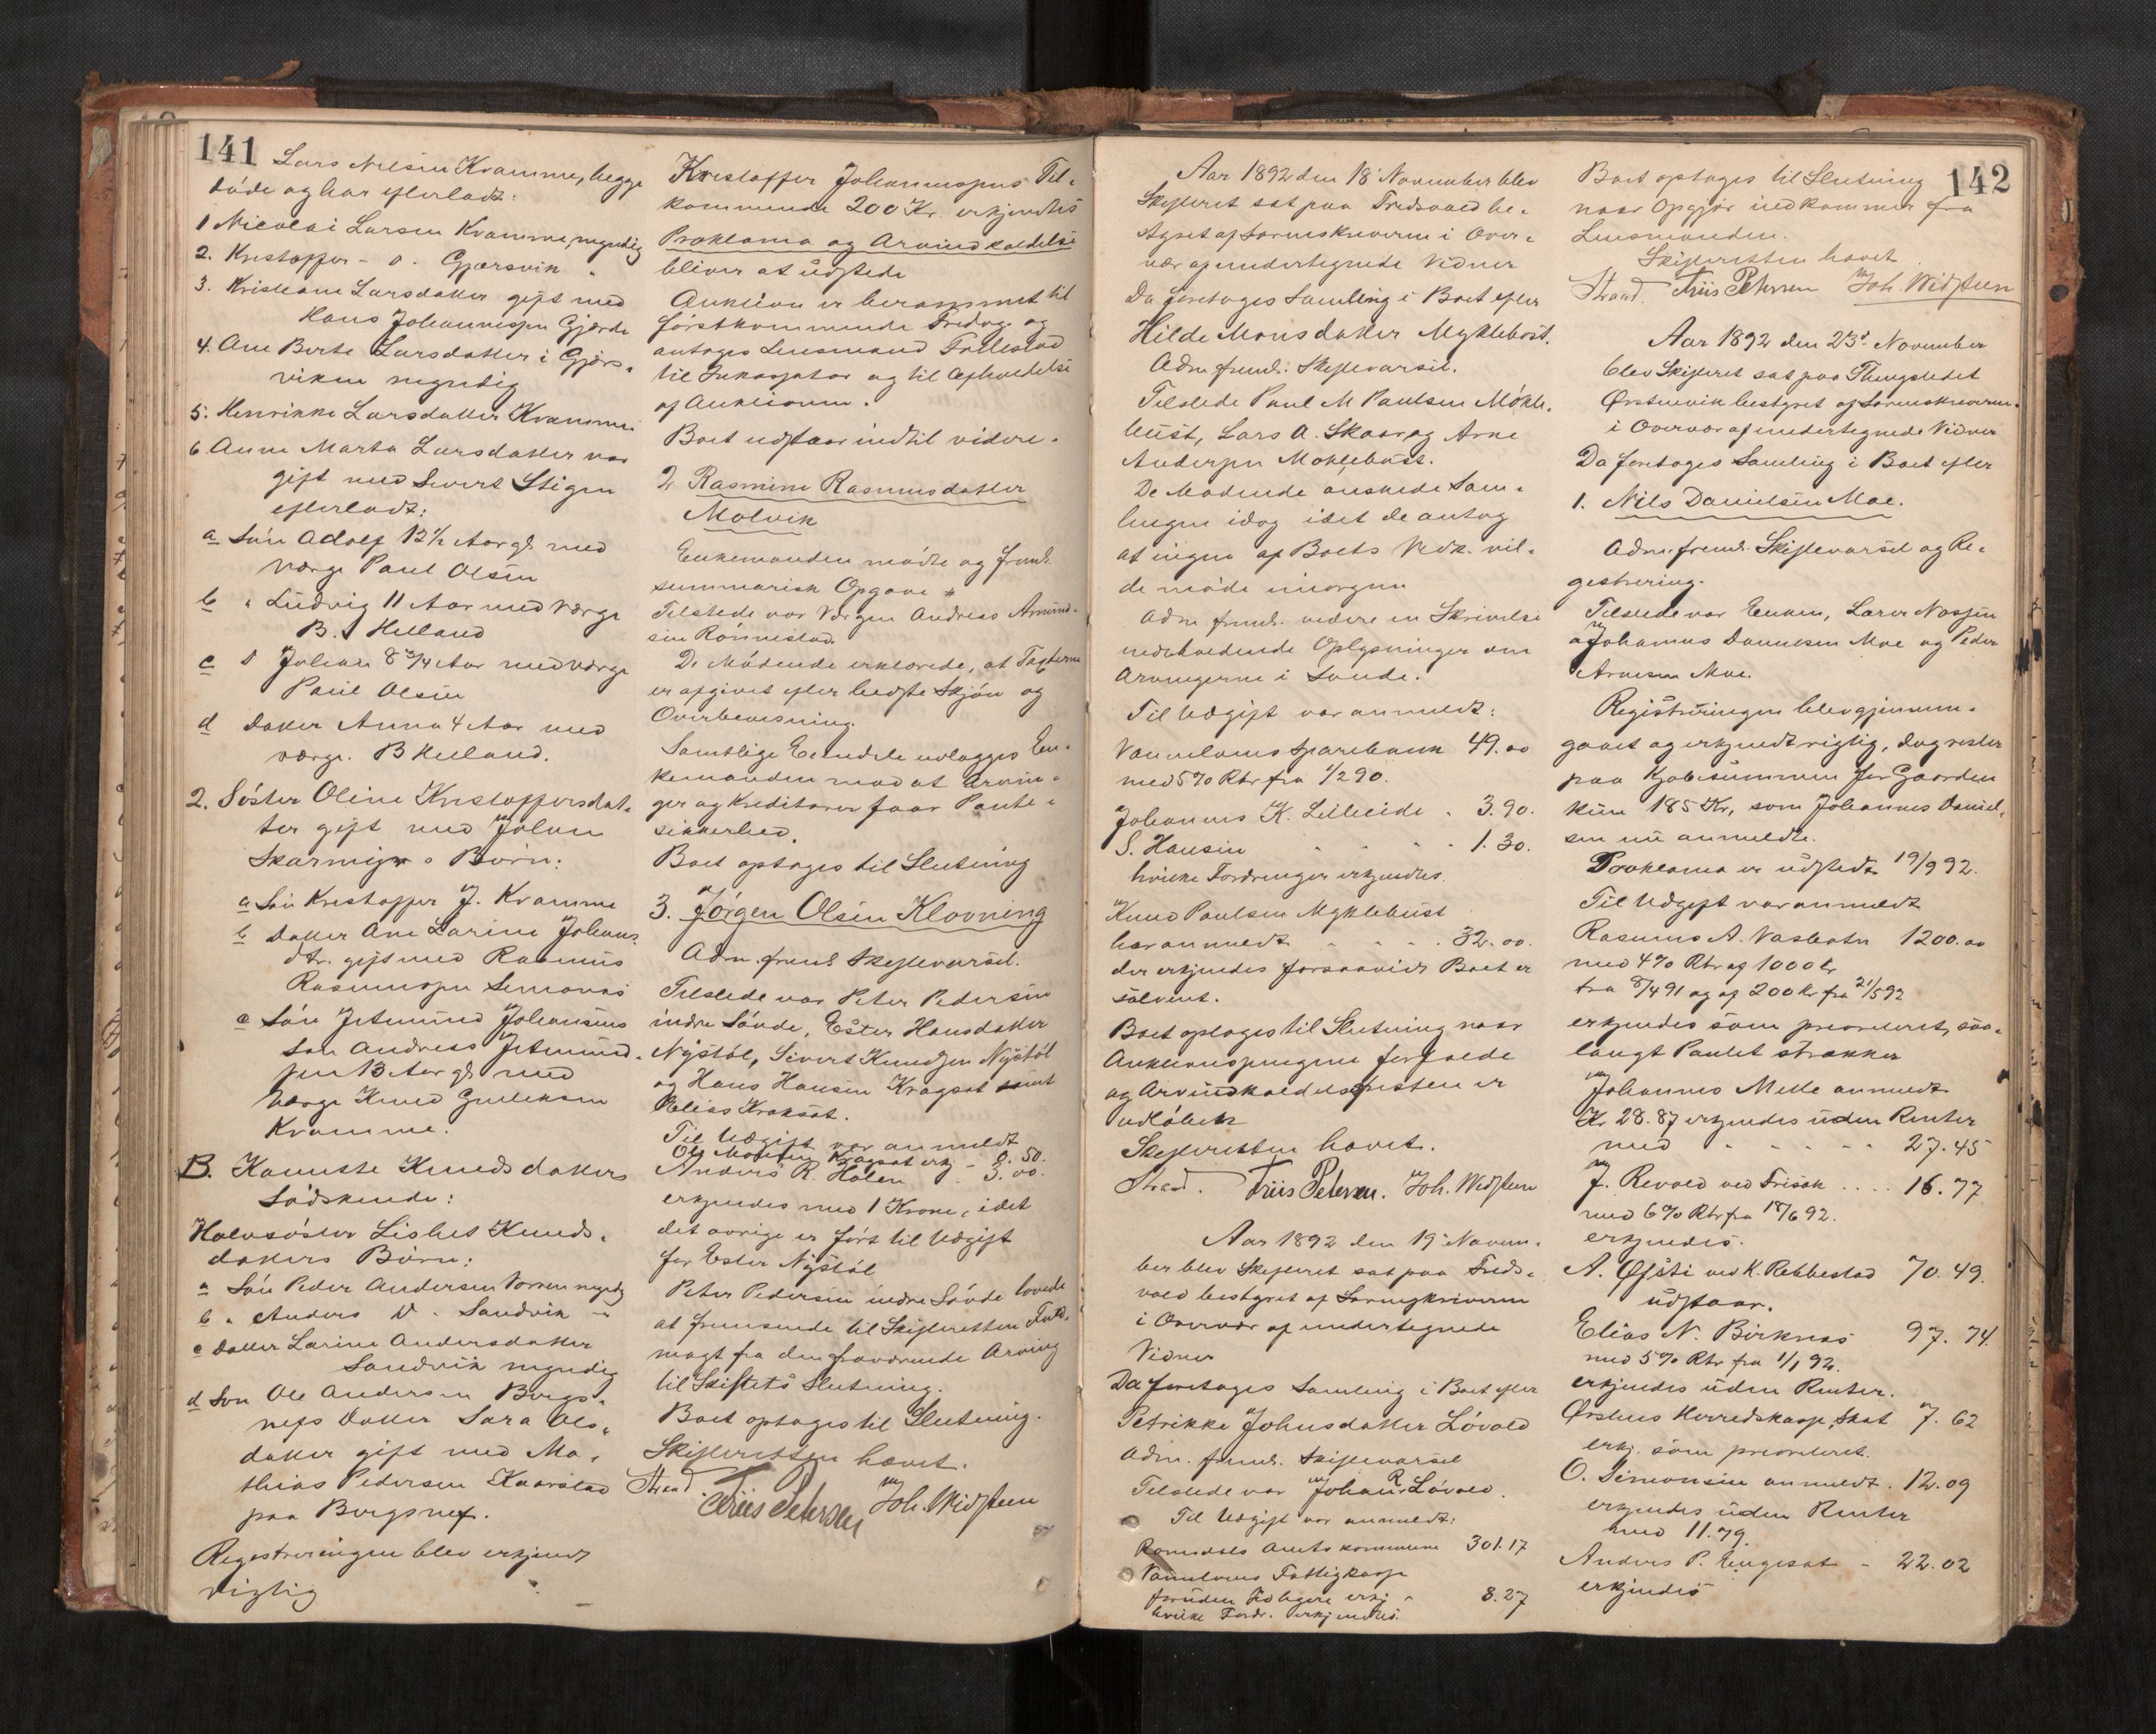 141
Lars Nilsen Kramme, begge
døde og har efterladt:
1 Nicolai Larsen Kramme, myndig
2. Kristoffer - o. Gjærsvik "
3. Kristiane Larsdatter gift med
Hans Johannessen Gjærde
4. Ane Berte Larsdatter i Gjærs-
viken myndig
5. Henrikke Larsdatter Kramme
6 Anne Marta Larsdatter var
gift med Sivert Stigen
efterladt:
a Søn Adolf 12½ Aar gl. med
Værge Paul Olsen
b " Ludvig 11 Aar med Værge
B. Helland
c D Johan 8 3/4 Aar med Værge
Paul Olsen
d Datter Anna 4 Aar med
Værge. B Helland.
2. Søster Oline Kristoffersdat-
ter gift med Johan
Skarmyr o Børn:
a Søn Kristoffer J. Kramme
b Datter Ane Larine Johans
dtr. gift med Rasmus
Rasmussen Semonas
c Søn Jetmund Johansens
Søn Andreas Jetmund-
sen 13 Aar gl. med
Værge Knud Gulleksen
Kramme.
B. Kanutte Knudsdatters
Sødskende:
Halvsøster Lisbet Knuds-
datters Børn:
a Søn Peder Andersen Vorren myndig
b " Anders D. Sandvik "
c Datter Larine Andersdatter
Sandvik myndig
d Søn Ole Andersen Borgs-
nefs Datter Sara Ols-
datter gift med Ma-
thias Pedersen Kaarstad
paa Borgsnef.
Registreringen blev erkjendt
rigtig
Kristoffer Johannessens Til-
kommende 200 Kr. erkjendtes
Proklama og Arveindkaldelse
bliver at udstede
Auktion er berammet til
førstkommende Fredag og
antages Lensmand Follestad
til Inkassator og til Afholdelse
af Auktionen.
Boet udstaar indtil videre.
2, Rasmine Rasmusdatter
Molvik
Enkemanden mødte og freml.
summarisk Opgave #
Tilstede var Værgen Andreas Amund-
sen Rønnestad.
De Mødende erklærede, at Taxterne
er afgivet efter bedste Skjøn og
Overbevisning.
Samtlige Eiendele udlægges En-
kemanden mod at Arvin-
ger og Kreditorer faar Pante-
sikkerhed.
Boet optages til Slutning
3. Jørgen Olsen Klovning
Adm. freml. Skiftevarsel.
Tilstede var Peter Pedersen
indre Søvde, Ester Hansdatter
Nystøl, Sivert Knudsen Nystøl
og Hans Hansen Kragset samt
Elias Krakset.
Til Udgift var anmeldt
Ole Kragset erkj - 0.50.
Anders R. Holen - 3.00.
erkjendes med 1 Krone, idet
det øvrige er ført til Udgift
for Ester Nystøl
Peter Pedersen indre Søvde lovede
at fremsende til Skifteretten Fuld-
magt fra den fraværende Arving
til Skiftets Slutning.
Boet optages til Slutning.
Skifteretten hævet.
Strand. Friis Petersen Joh. Widsteen
Aar 1892 den 18 November blev
Skifteret sat paa Fredsvold be-
styret af Sorenskriveren i Over-
vær af undertegnede Vidner
Da foretages Samling i Boet efter
Hilde Monsdatter Myklebost.
Adm freml. Skiftevarsel.
Tilstede Paul M Paulsen Mykle-
bust, Lars A. Skaar og Arne
Andersen Moklebust.
De Mødende ønskede Sam-
lingen idag idet de antog
at ingen af Boets Vedk. vil-
de møde imorgen
Adm freml. videre en Skrivelse
indeholdende Oplysninger om
Arvingerne i Sunde.
Til Udgift var anmeldt:
Vannelvens Sparebank 49.00
med 5% Rtr fra 1/2 90.
Johannes K. Lilleeide " 3.90.
S. Hansen " " " 1.30.
hvilke Fordringer erkjendtes.
Knud Paulsen Myklebust
har anmeldt " " " 32.00.
der erkjendes forsaavidt Boet er
solvent.
Boet optages til Slutning naar
Auktionspengene forfalde
og Arveindkaldelsesfristen er
udløben
Skifteretten hævet.
Strand. Friis Petersen. Joh. Widsteen
Aar 1892 den 19 Novem-
ber blev Skifteret sat paa Freds-
vold bestyret af Sorenskriveren
i Overvær af undertegnede
Vidner
Da foretages Samling i Boet efter
Petrikke Johnsdatter Løvold
Adm. freml. Skiftevarsel
Tilstede var Johan R Løvold.
Til Udgift var anmeldt:
Romsdals Amtskommune 301.17
Vannelvens Fattigkasse
foruden Tidligere erkj " 8.27
hvilke Fordr. erkjendtes.
142
Boet optages til Slutning
naar Opgjør indkommer fra
Lensmanden.
Skifteretten hævet
Strand. Friis Petersen Joh. Widsteen
Aar 1892 den 23de November
blev Skifteret sat paa Thingstedet
Ørstenvik bestyret af Sorenskriveren
i Overvær af undertegnede Vidner
Da foretages Samling i Boet efter
1. Nils Danielsen Moe.
Adm. freml. Skiftevarsel og Re-
gistrering.
Tilstede var Enken, Lærer Nossen
og Johannes Danielsen Moe og Peder
Arnesen Moe.
Registreringen blev gjennem-
gaaet og erkjendt rigtig, dog rester
paa Kjøbesummen for Gaarden
kun 185 Kr, som Johannes Daniel-
sen nu anmeldte.
Proklama er udstedt 19/9 92.
Til Udgift var anmeldt
Rasmus A. Vasbotn 1200.00
med 4% Rtr af 1000 Kr
fra 8/4 91 og af 200 Kr fra 21/5 92
erkjendes som prioriteret, saa-
langt Pantet strækker
Johannes Melle anmeldt
Kr 28.87 erkjendes uden Renter
med " " " " 27.45
J. Revold ved Frisak .... 16.77
med 6% Rtr fra 18/6 92.
erkjendes.
A. Øfsti ved K. Rebbestad 70.49.
udstaar.
Elias N. Birknes 97.74.
med 5% Rtr fra 1/1 92.
erkjendes uden Renter.
Ørstens Herredskasse, Skat 7.62
erkj. som prioriteret.
O. Simonsen anmeldt. 12.09
erkjendes uden Renter
med 11.79.
Anders P. Engeset - 22.02
erkjendes